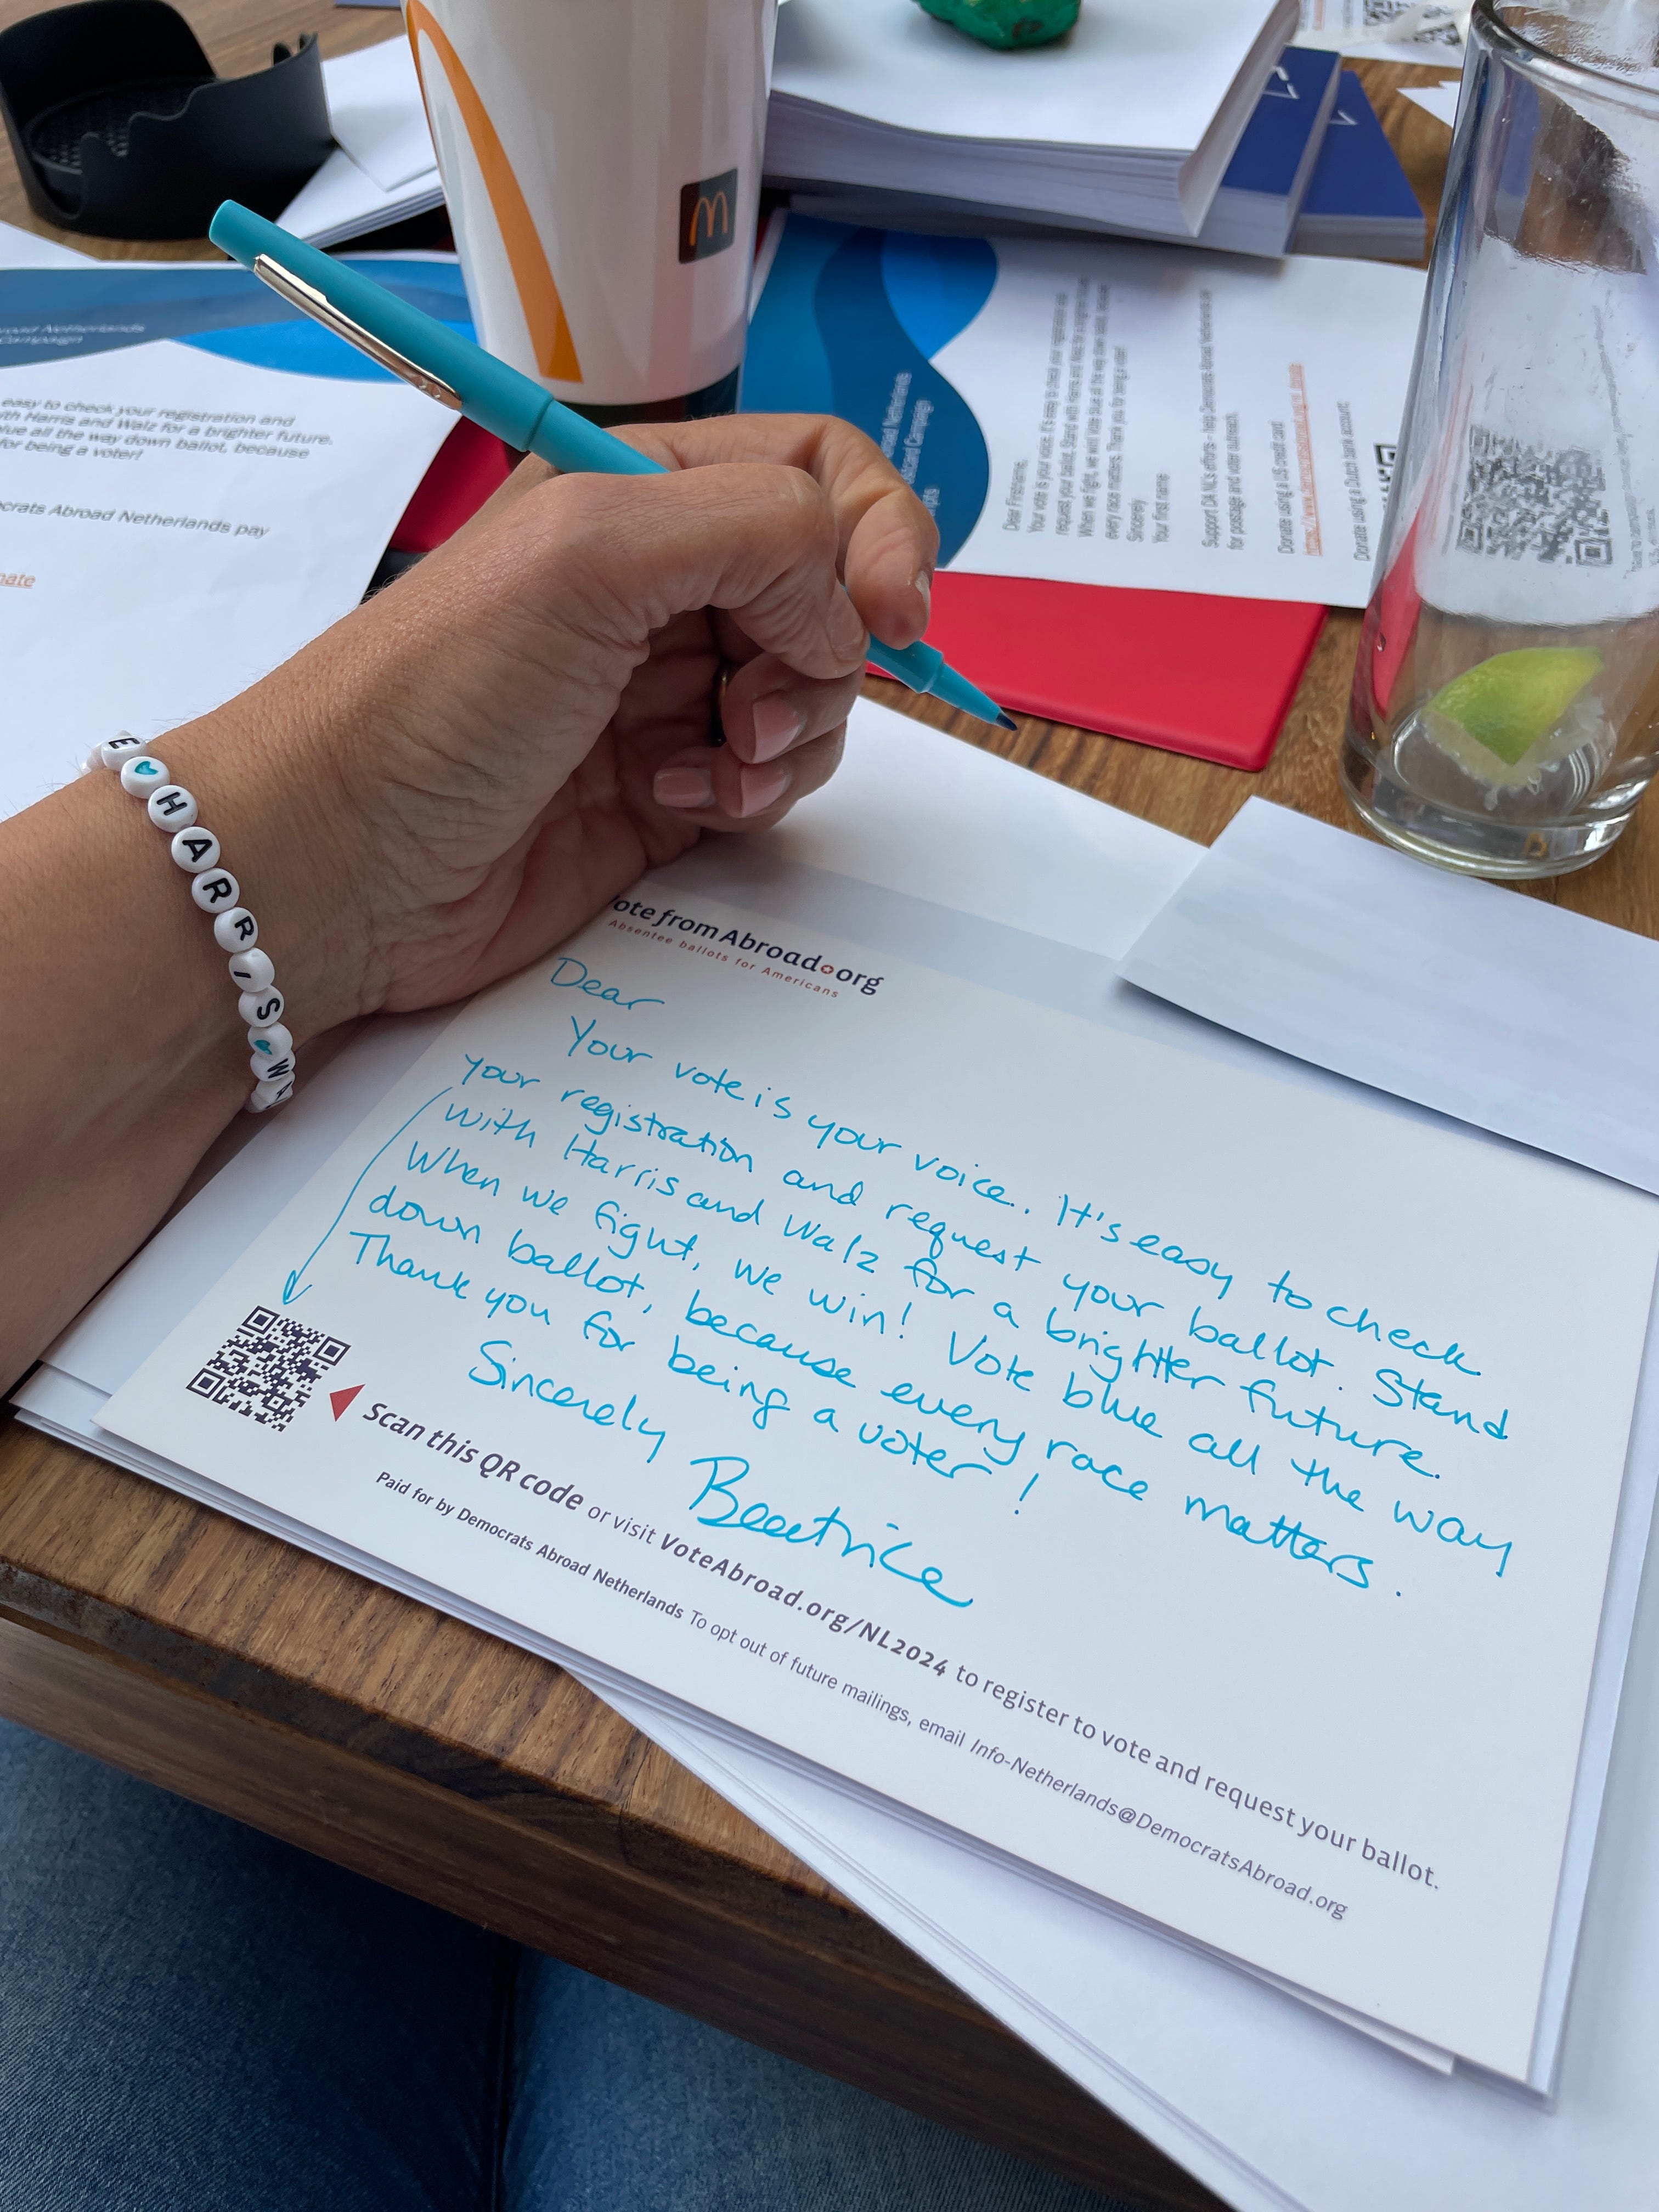 road Netherlands
Campaign
easy to check your registration and
ith Harris and Walz for a brighter future.
lue all the way down ballot, because
for being a voter!
crats Abroad Netherlands pay
nate
road Netherlands
stcard Campaign
ipts
Dear Firstname,
Your vote is your voice. It's easy to check your registration and
request your ballot. Stand with Harris and Walz for a brighter future.
When we fight, we win! Vote blue all the way down ballot, because
every race matters. Thank you for being a voter!
Sincerely
Your first name
Support DA NL's efforts - help Democrats Abroad Netherlands pay
for postage and voter outreach.
Donate using a US credit card:
Donate using a Dutch bank account:
E H A R R I S W A
otefromAbroad.org
Absentee ballots for Americans
Dear
Your vote is your voice. It's easy to check
your registration and request your ballot. Stand
with Harris and Walz for a brighter future.
When we fight, we win! Vote blue all the way
down ballot, because every race matters.
Thank you for being a voter!
Sincerely
Beatrice
Scan this QR code or visit VoteAbroad.org/NL2024 to register to vote and request your ballot.
Paid for by Democrats Abroad Netherlands To opt out of future mailings, email Info-Netherlands@DemocratsAbroad.org